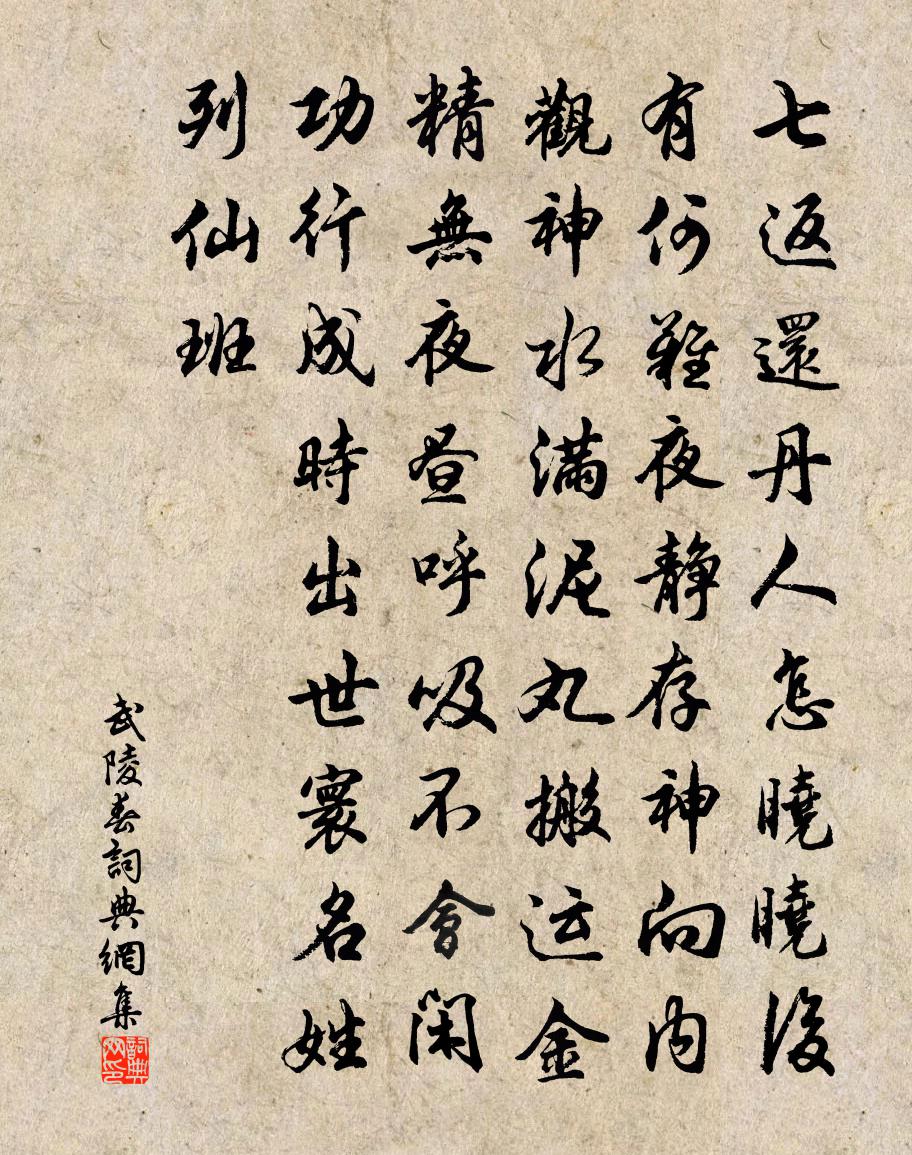 七返還丹人怎曉曉後
有何難夜静存神向内
觀神水滿泥丸搬运金
精無夜昼呼吸不會閑
功行成時出世寰名姓
列仙班
武陵春詞典網集
詞典网印